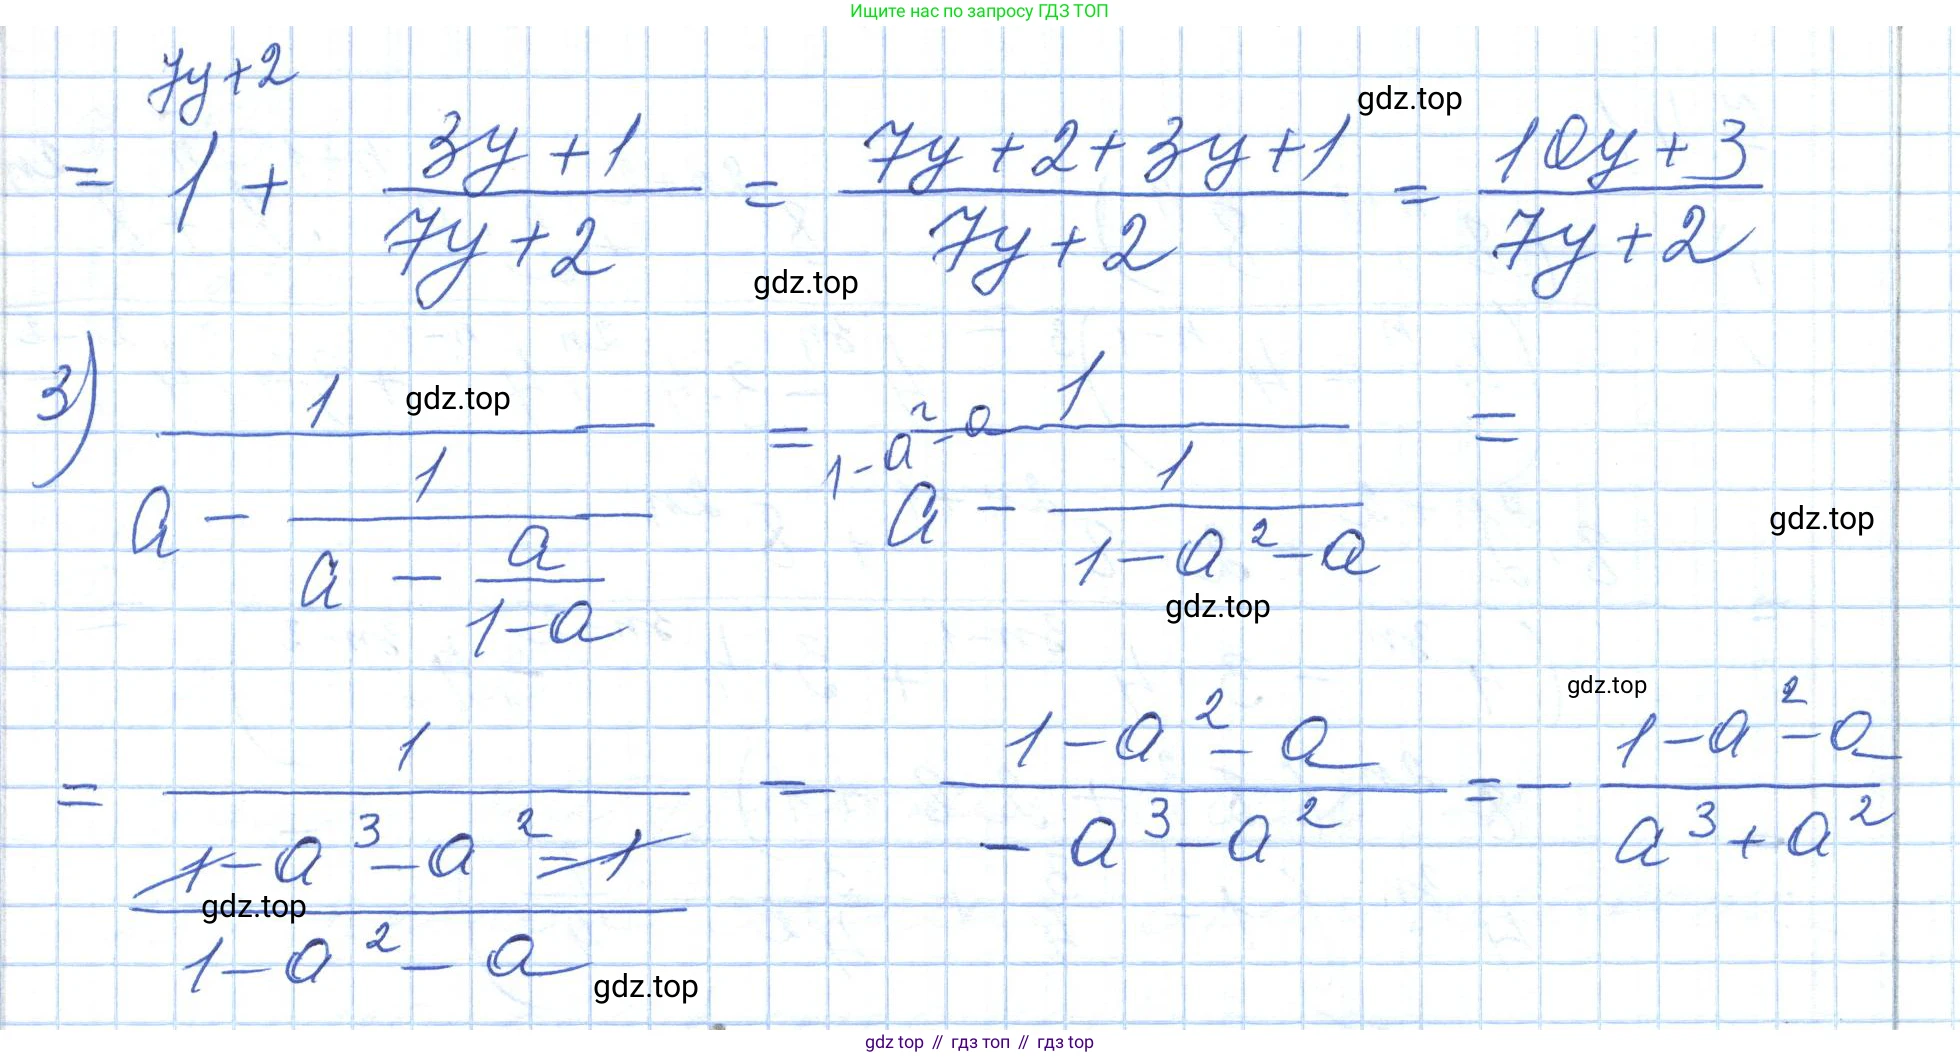 Ищите нас по запросу ГДЗ ТОП
7y+2
= 1 + (3y+1)/(7y+2) = (7y+2+3y+1)/(7y+2) = (10y+3)/(7y+2)
gdz.top
gdz.top
3) 1/(a - 1/(a - a/(1-a))) = 1/(a - 1/(1-a²-a)) =
1-a²-a
gdz.top
gdz.top
gdz.top
= 1/((1-a³-a²-1)/(1-a²-a)) = (1-a²-a)/(-a³-a²) = -(1-a²-a)/(a³+a²)
gdz.top
gdz.top
gdz.top
gdz top // гдз топ // гдз top